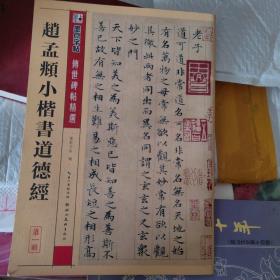 墨点字帖
傳世碑帖精選
趙孟頫小楷書道德經
第一輯
老子
道可道非常道名可名非常名無名天地之始
有名萬物之母常無欲以觀其妙常有欲以觀
其徼此兩者同出而異名同謂之玄玄之又玄衆
妙之門
天下皆知美之為美斯惡已皆知善之為善斯不
善已故有無之相生難易之相成長短之相形高
年